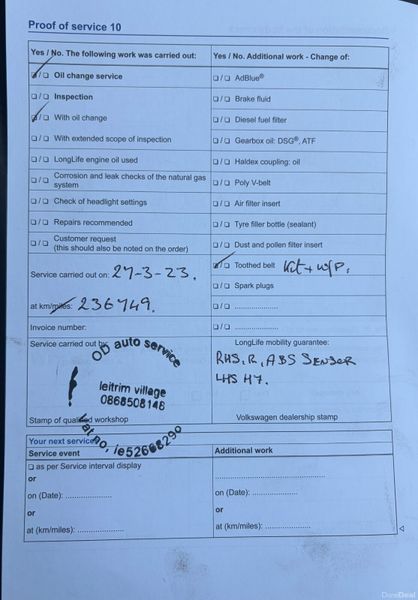 Proof of service 10
Yes / No. The following work was carried out:
☑/☐ Oil change service
☐/☐ Inspection
☑/☐ With oil change
☐/☐ With extended scope of inspection
☐/☐ LongLife engine oil used
☐/☐ Corrosion and leak checks of the natural gas
system
☐/☐ Check of headlight settings
☐/☐ Repairs recommended
☐/☐ Customer request
(this should also be noted on the order)
Service carried out on: 27-3-23.
at km/miles: 236749.
Invoice number:
Service carried out by:
OD auto service
leitrim village
0868508148
vat no, ie52668290
Stamp of qualified workshop
Yes / No. Additional work - Change of:
☐/☐ AdBlue®
☐/☐ Brake fluid
☐/☐ Diesel fuel filter
☐/☐ Gearbox oil: DSG®, ATF
☐/☐ Haldex coupling: oil
☐/☐ Poly V-belt
☐/☐ Air filter insert
☐/☐ Tyre filler bottle (sealant)
☐/☐ Dust and pollen filter insert
☑/☐ Toothed belt Kit + W/P.
☐/☐ Spark plugs
☐/☐ ..................
☐/☐ ..................
LongLife mobility guarantee:
RHS.R, ABS SENSOR
LHS H7.
Volkswagen dealership stamp
Your next service
Service event
☐ as per Service interval display
or
on (Date): ..................
or
at (km/miles): ..................
Additional work
..................
on (Date): ..................
or
at (km/miles): ..................
DoneDeal